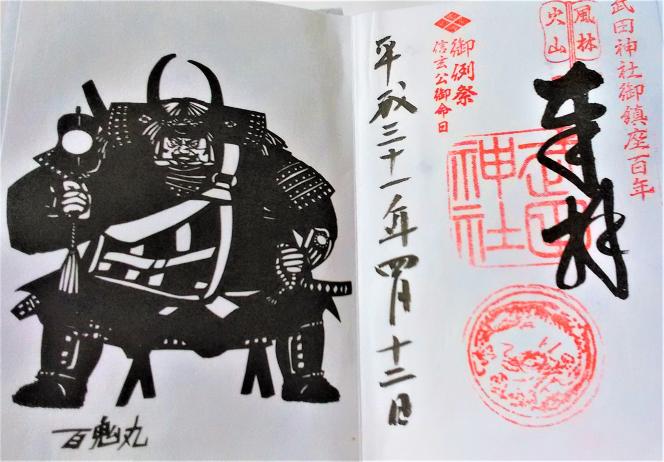 武田神社御鎮座百年
風林
火山
奉拝
武田
神社
御例祭
信玄公御命日
平成三十一年四月十二日
百鬼丸